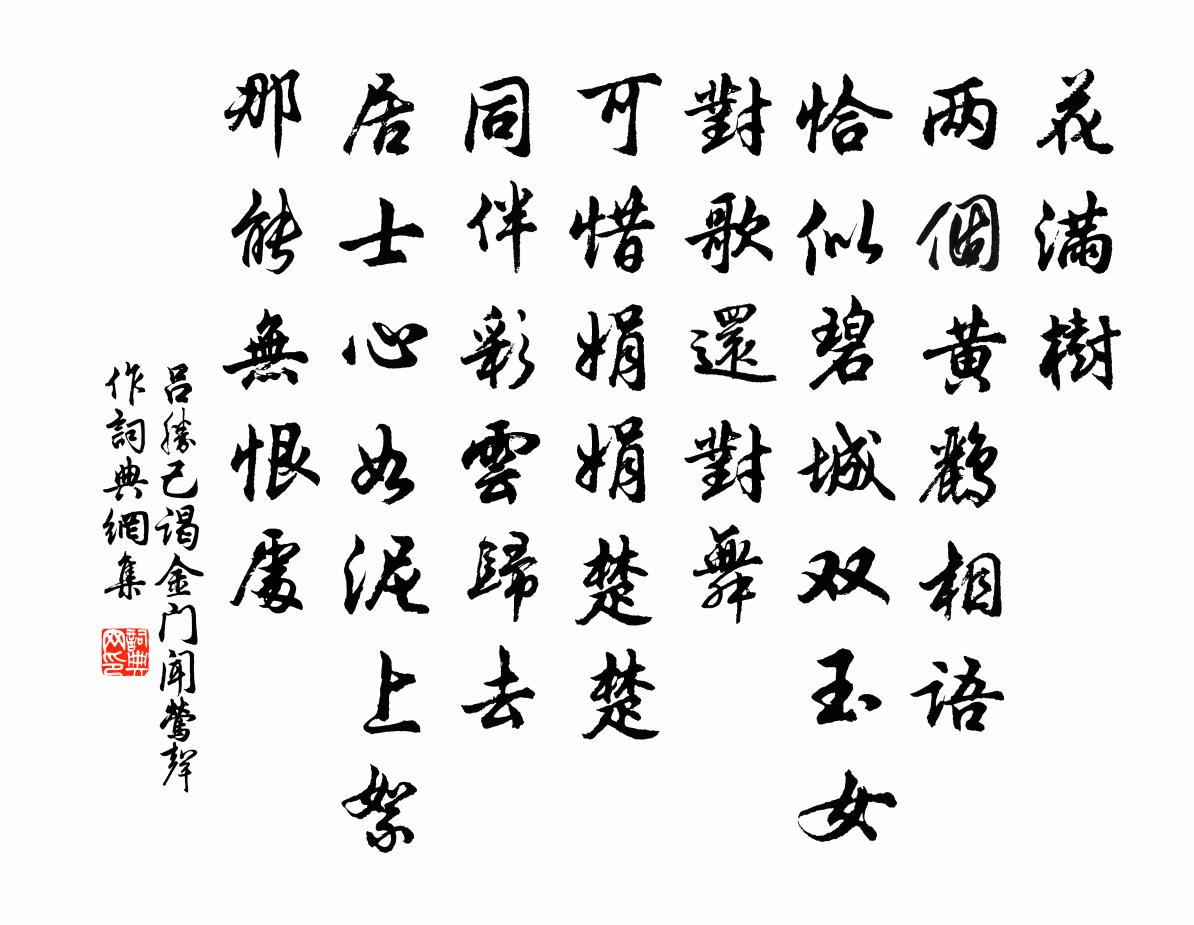 花满樹
两個黄鸝相語
恰似碧城双玉女
對歌還對舞
可惜娟娟楚楚
同伴彩雲歸去
居士心如泥上絮
那能無恨處
呂勝己谒金门闻鶯聲
作詞典網集
詞典网印